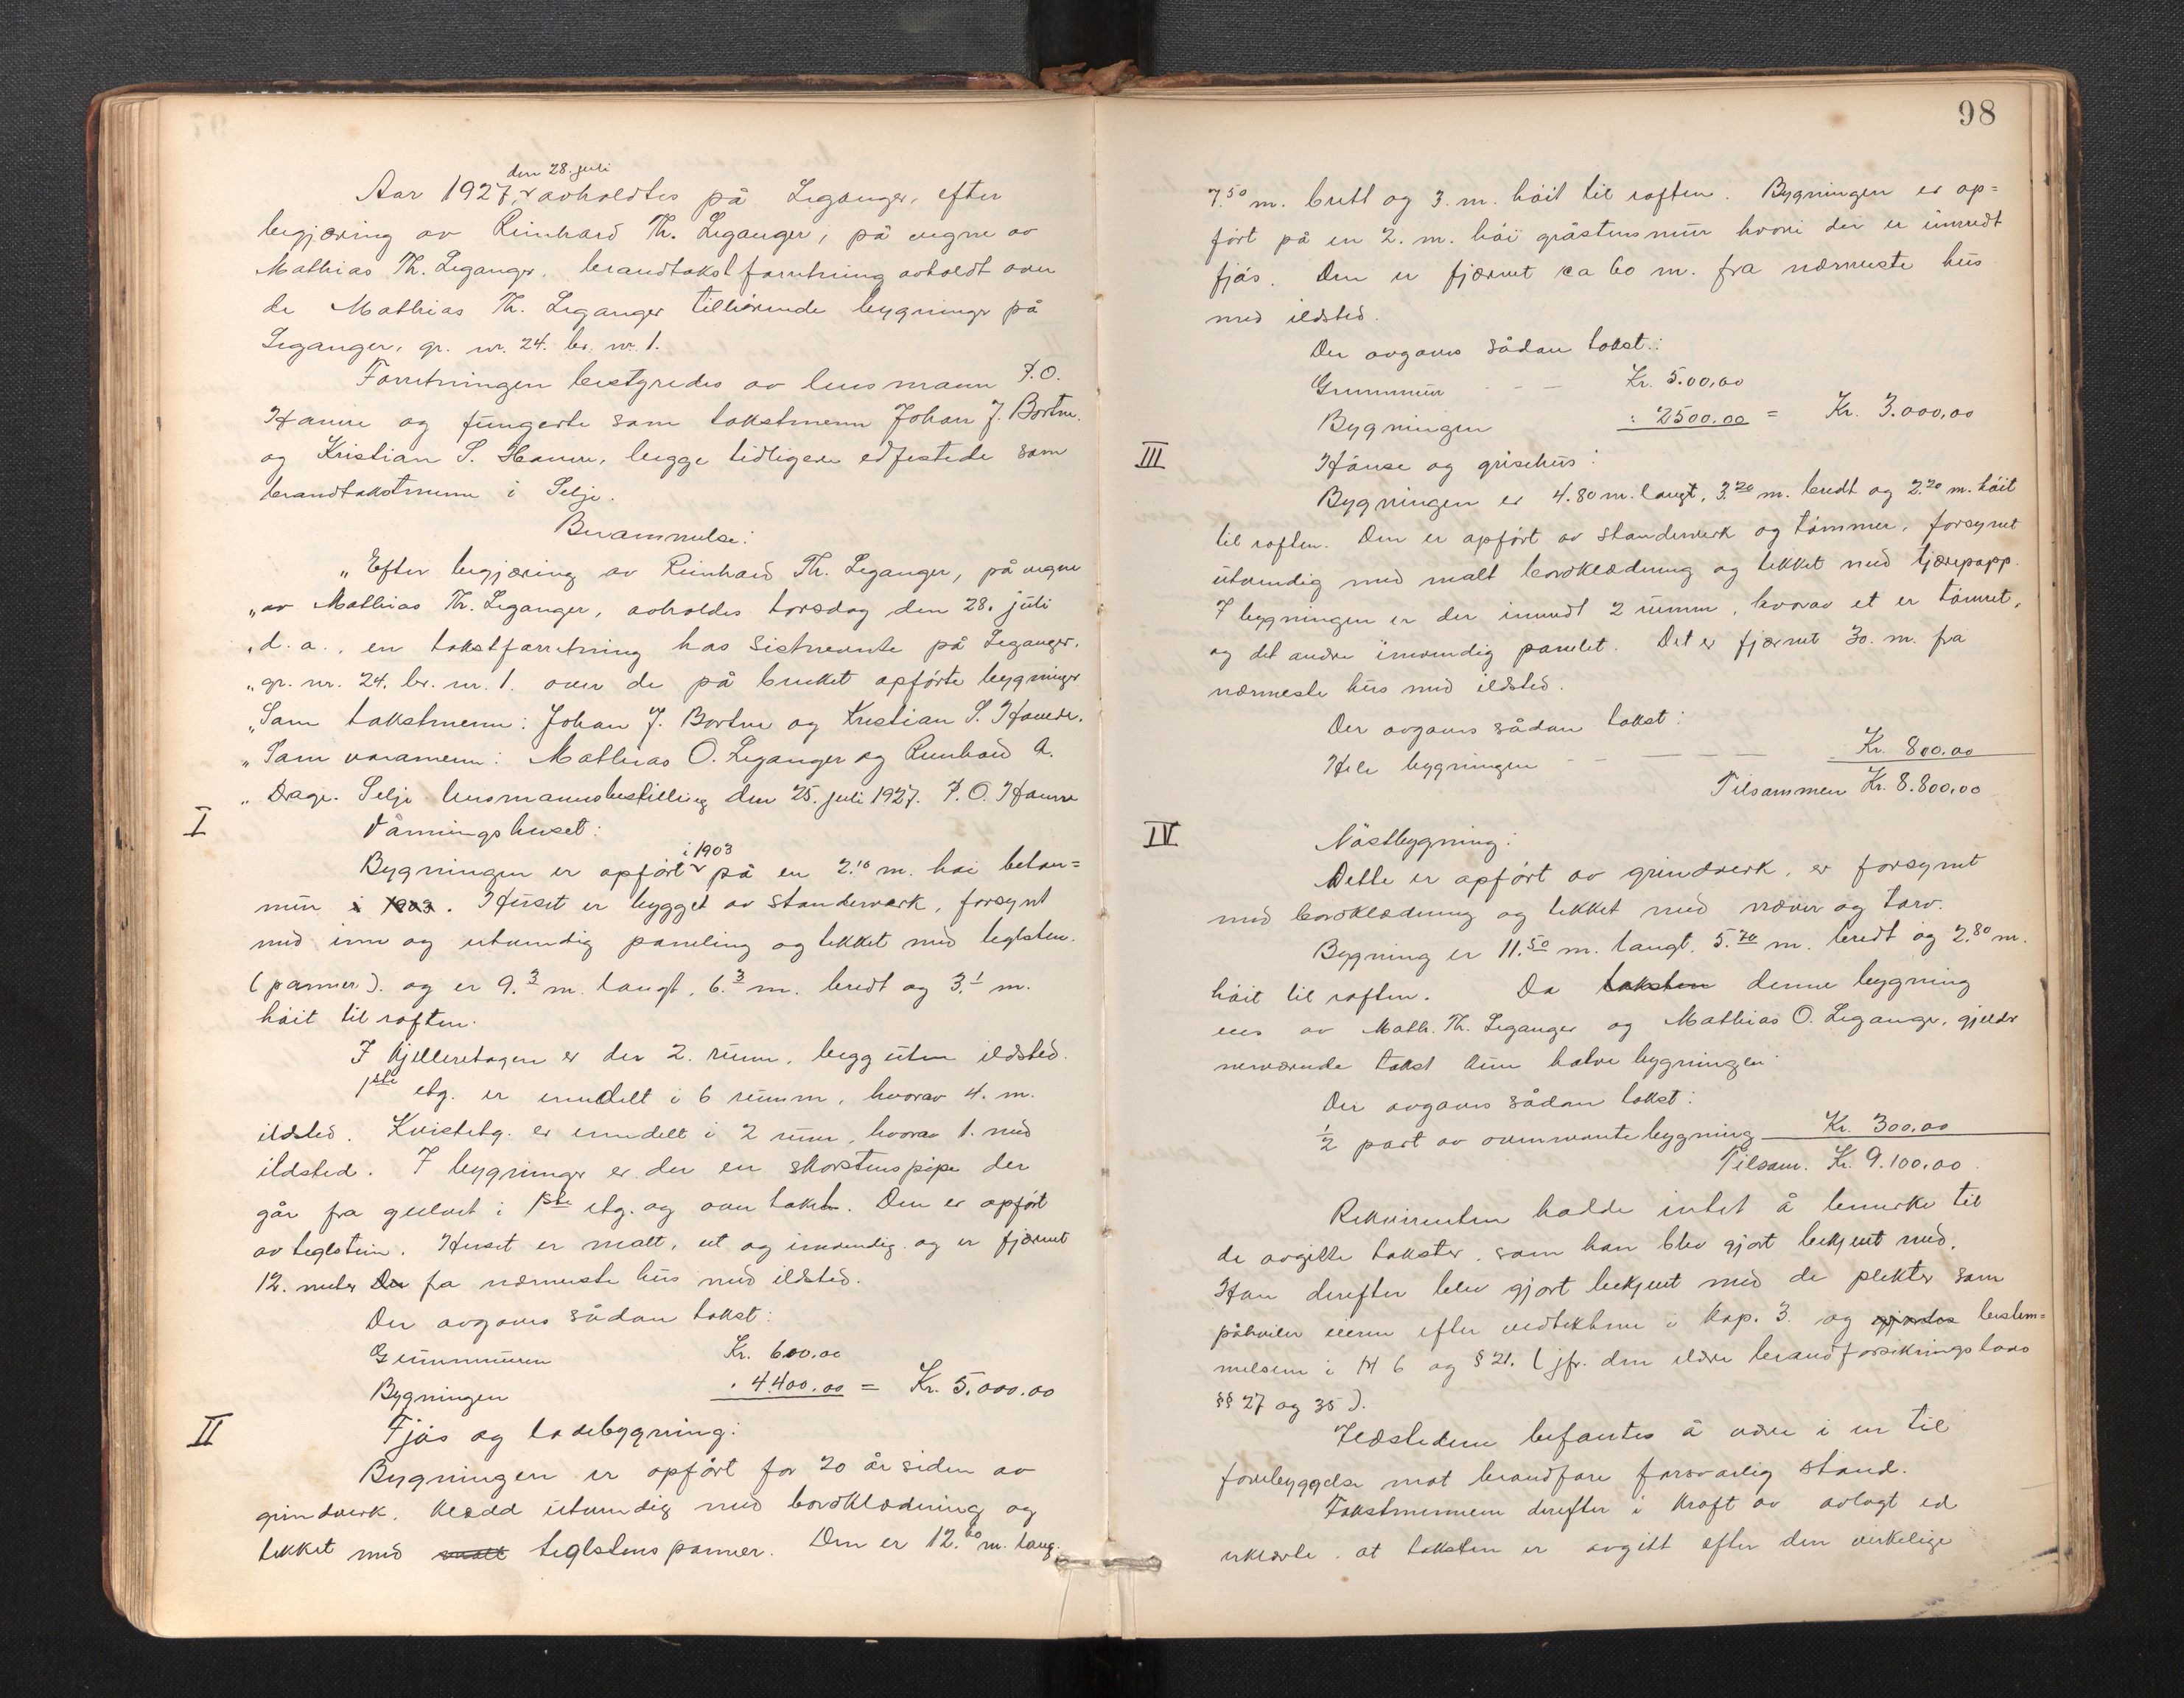 den 28. juli
Aar 1927, avholdtes på Leganger, efter
begjæring av Reinhard Th. Leganger, på vegne av
Mathias Th. Leganger, brandtakstforretning avholdt over
de Mathias Th. Leganger tilhörende bygninger på
Leganger, gr. nr. 24. br. nr. 1.
Forretningen bestyredes av lensmann P.O.
Hamre og fungerte som takstmenn Johan J. Bortne
og Kristian S. Hamre, begge tidligere edfestede som
brandtakstmenn i Selje.
Berammelse:
„Efter begjæring av Reinhard Th. Leganger, på vegne
„av Mathias Th. Leganger, avholdes torsdag den 28. juli
„d. a., en takstforretning hos sistnevnte på Leganger,
„gr. nr. 24. br. nr. 1. over de på bruket opförte bygninger
„Som takstmenn: Johan J. Bortne og Kristian S. Hamre.
„Som varamenn: Mathias O. Leganger og Reinhard A.
„Drage. Selje lensmannsbestilling den 25. juli 1927. P.O. Hamre
I
Våningshuset:
i 1903
Bygningen er opfört på en 2.10 m. höi beton=
mur i 1903. Huset er bygget av standerverk, forsynt
med inn og utvendig paneling og tekket med teglsten.
(panner). og er 9.3 m. langt, 6.3 m. bredt og 3.1 m.
höit til raften.
I kjelleretagen er der 2. rum, begg uten ildsted.
1ste etg. er inndelt i 6 rumm, hvorav 4. m.
ildsted. Kvistetg. er inndelt i 2 rum, hvorav 1. med
ildsted. I bygninger er der en skorstenspipe der
går fra gulvet i 1ste etg. og over taket. Den er opfört
av teglstein. Huset er malt, ut og innvendig og er fjernet
12. meter Den fra nærmeste hus med ildsted.
Der avgaves sådan takst:
Grunnmuren Kr. 600.00
Bygningen " 4.400.00 = Kr. 5.000.00
II
Fjös og ladebygning:
Bygningen er opfört for 20 år siden av
grindverk, klædd utvendig med bordklædning og
tekket med malt teglstenspanner. Den er 12.60 m. lang.
98
7.50 m. brett og 3. m. höit til raften. Bygningen er op=
fört på en 2. m. höi gråstensmur hvori der er innredt
fjös. Den er fjærnet ca 60 m. fra nærmeste hus
med ildsted.
Der avgaves sådan takst:
Grunnmur - - - Kr. 5.00,00
Bygningen " 2500.00 = Kr. 3.000,00
III
Hönse og grisehus:
Bygningen er 4.80 m. langt, 3.20 m. bredt og 2.20 m. höit
til raften. Den er opfört av standerverk og tömmer, forsynet
utvendig med malt bordklædning og tekket med tjærepapp.
I bygningen er der innredt 2 rumm, hvorav et er tömret,
og det andre innvendig panelet. Det er fjærnet 30. m. fra
nærmeste hus med ildsted.
Der avgaves sådan takst:
Hele bygningen - - - Kr. 800.00
Tilsammen Kr. 8.800,00
IV
Nöstbygning:
Dette er opfört av grindverk, er forsynet
med bordklædning og tekket med næver og torv.
Bygning er 11.50 m. langt, 5.70 m. bredt og 2.80 m.
höit til raften. Da taksten denne bygning
eies av Math. Th. Leganger og Mathias O. Leganger, gjelder
nerværende takst kun halve bygningen
Der avgaves sådan takst:
1/2 part av ovennevnte bygning Kr. 300,00
Tilsam. Kr. 9.100,00
Rekvirenten hadde intet å bemerke til
de avgitte takster, som han blev gjort bekjent med.
Han derefter blev gjort bekjent med de plikter som
påhviler eieren efter vedtektene i kap. 3. og bestem=
melsene i § 6 og § 21. (jfr. den eldre brandforsikringslovs
§§ 27 og 35).
Ildstedene befantes å være i en til
forebyggelse mot brandfare forsvarlig stand.
Takstmennene derefter i kraft av avlagt ed
erklærte, at taksten er avgitt efter den virkelige